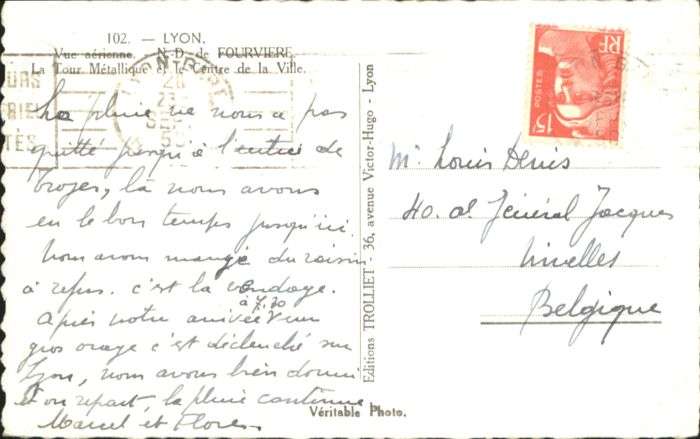 102. — LYON.
Vue aérienne. N.-D. de FOURVIÈRE.
La Tour Métallique et le Centre de la Ville.
La pluie ne nous a pas
quitté jusqu'à l'entrée de
Troyes, là nous avons
eu le bon temps jusqu'ici.
Nous avons mangé du raisin
à refus. c'est la vendage.
à 7,30
Après notre arrivée un
gros orage c'est déclenché sur
Lyon, nous avons bien dormi
et on repart, la pluie continue
Marcel et Flore
Véritable Photo.
Editions TROLLIET - 36, avenue Victor-Hugo - Lyon
RF
POSTES
15F
Mr Louis Denis
40. al Général Jacques
Nivelles
Belgique